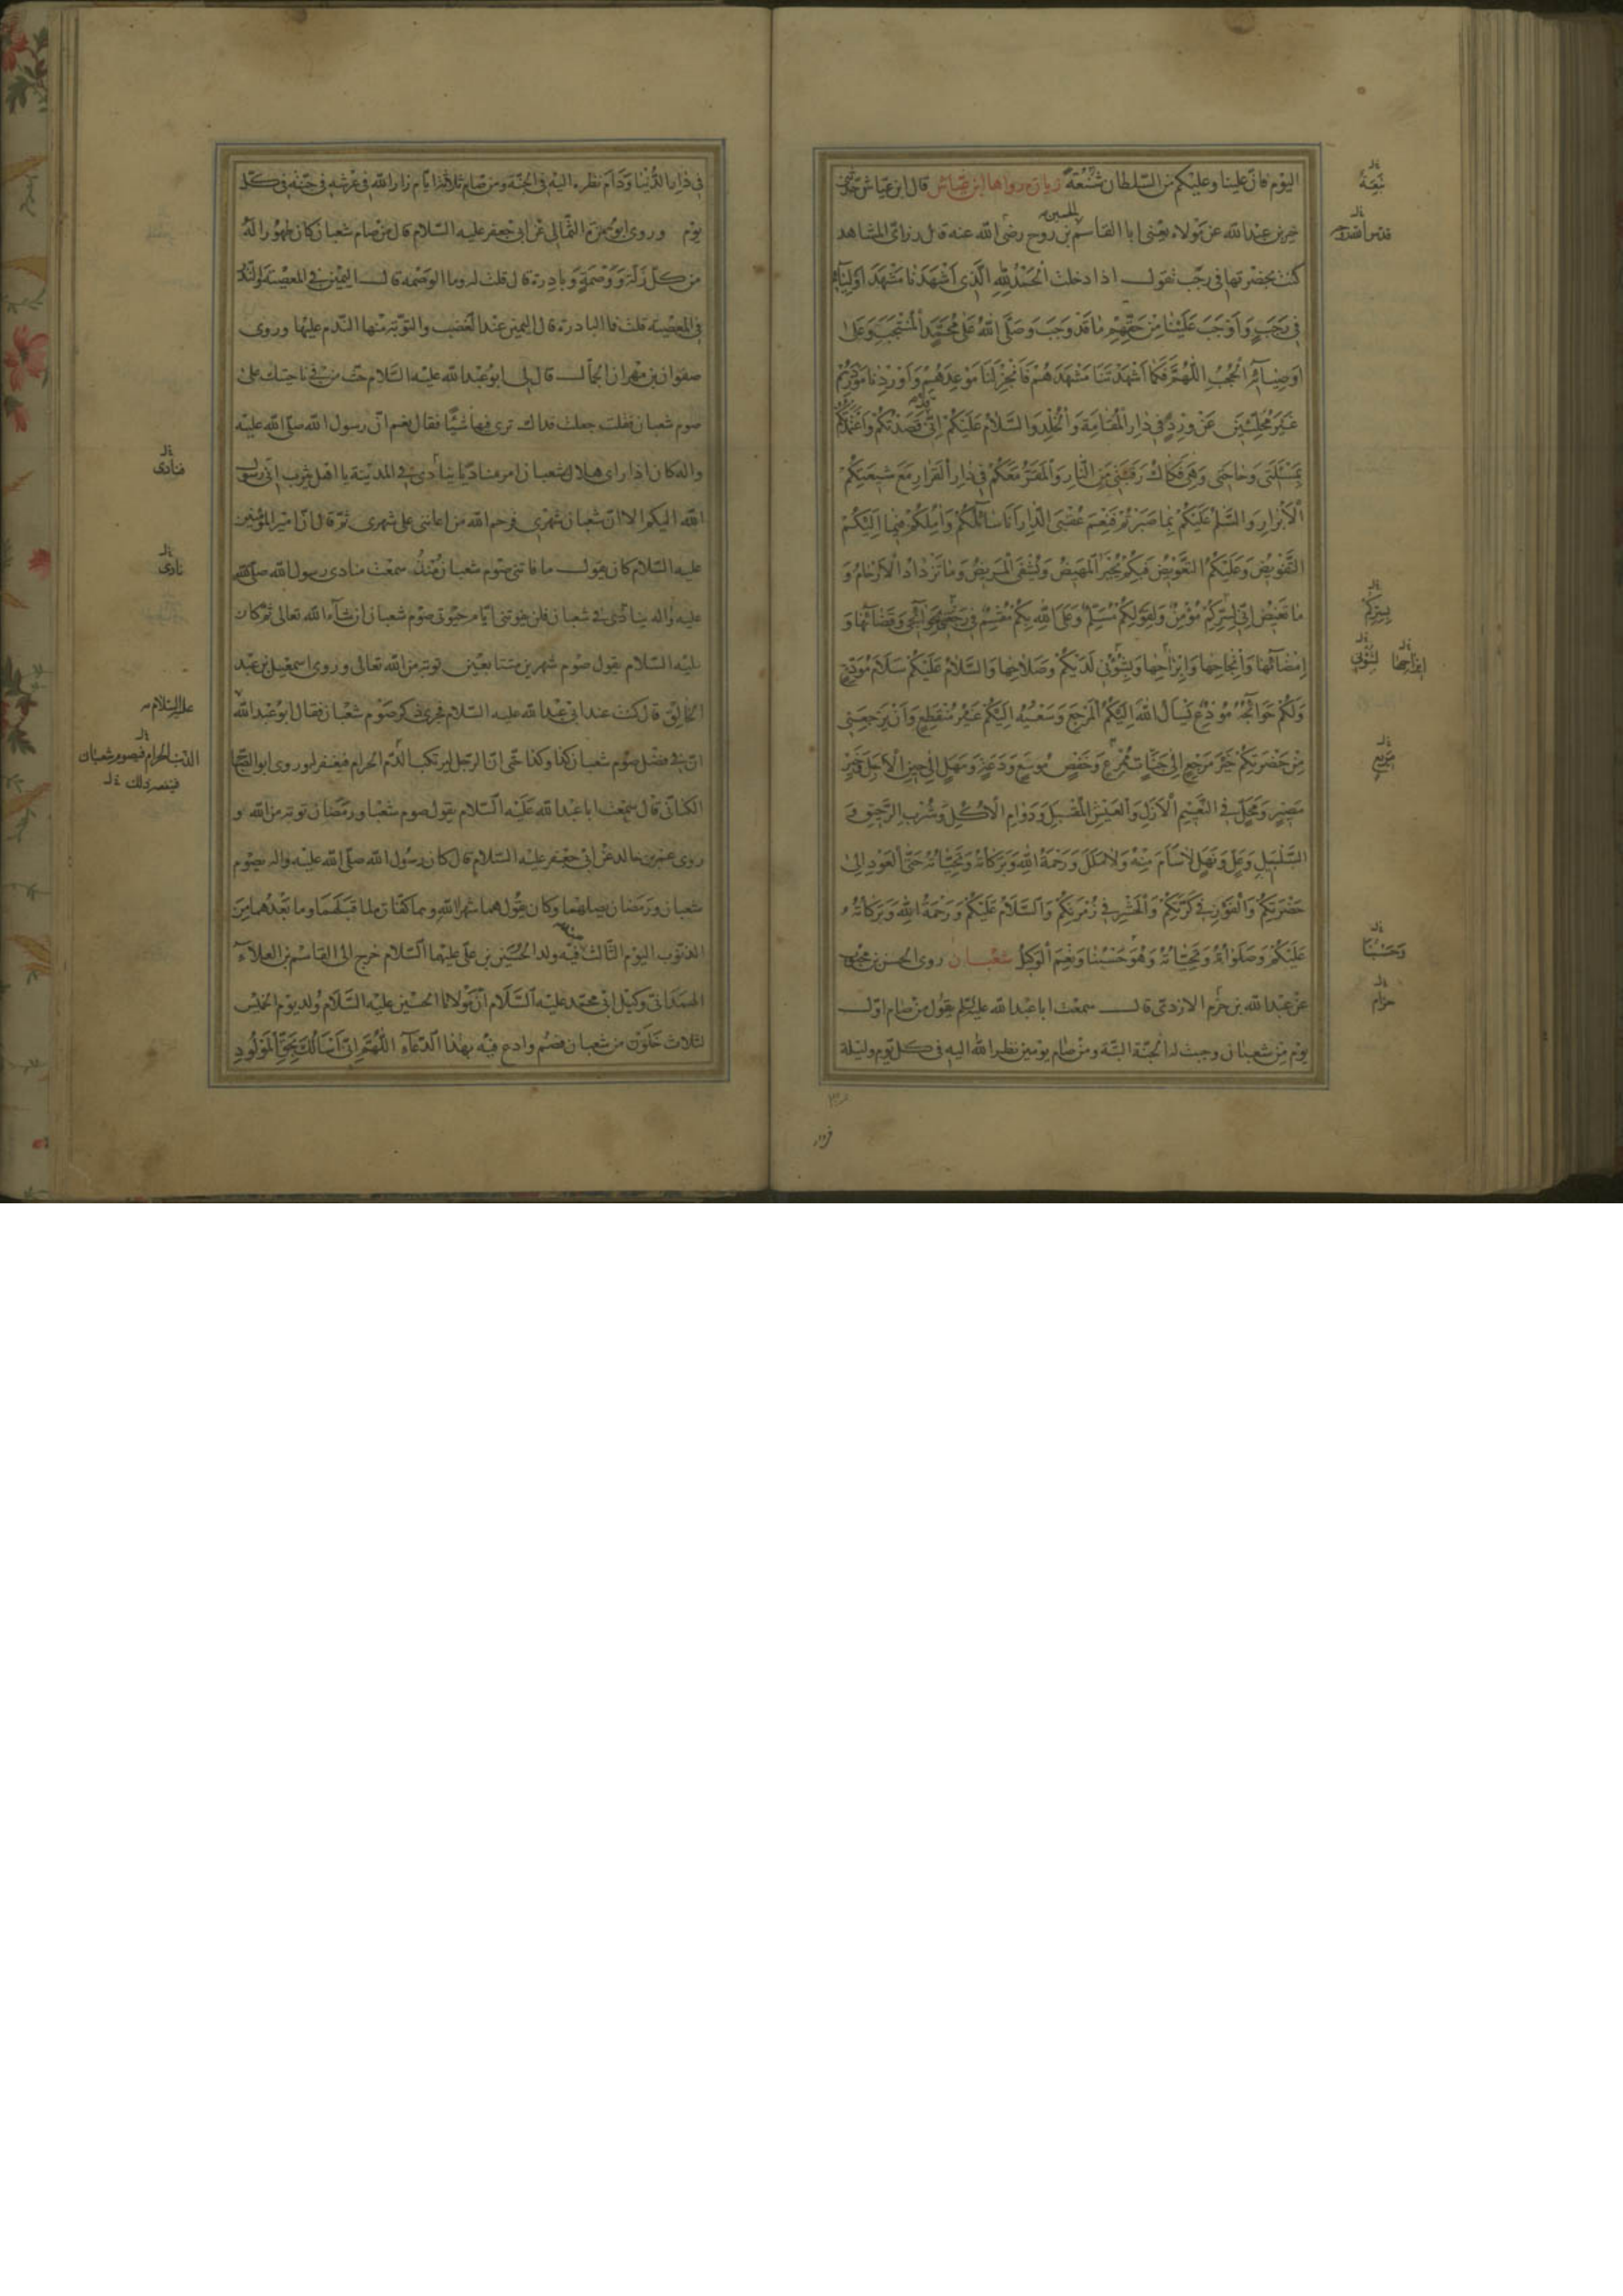 اليوم فان علينا وعليكم من السلطان شنعة زيارة رواها ابن عياش قال ابن عياش حدثني
خير بن عبدالله عن مولاه يعني ابا القاسم بن روح رضي الله عنه قال زر اي المشاهد
الحسين
كنت بحضرتها في رجب تقول اذا دخلت الحمد لله الذي اشهدنا مشهد اوليائه
في رجب واوجب علينا من حقهم ما قد وجب وصلى الله على محمد المنتجب وعلى
اوصيائه الحجب اللهم فكما اشهدتنا مشهدهم فانجز لنا موعدهم واوردنا موردهم
غير محلئين عن ورد في دار المقامة والخلد والسلام عليكم اني قصدتكم واعتمدتكم
بمسئلتي وحاجتي وهي فكاك رقبتي من النار والمقر معكم في دار القرار مع شيعتكم
الابرار والسلم عليكم بما صبرتم فنعم عقبى الدار انا سائلكم واملكم فيما اليكم
التفويض وعليكم التعويض فبكم يجبر المهيض ويشفى المريض وما تزداد الارحام و
ما تغيض اني بسركم مؤمن ولقولكم مسلم وعلى الله بكم مقسم في رجعي بحوائجي وقضائها و
امضائها وانجاحها وابراحها وبشؤني لديكم وصلاحها والسلام عليكم سلام مودع
ولكم حوائجه مودع يسال الله اليكم المرجع وسعيه اليكم غير منقطع وان يرجعني
من حضرتكم خير مرجع الى جناب ممرع وخفض موسع ودعة ومهل الى حين الاجل وخير
مصير ومحل في النعيم الازل والعيش المقتبل ودوام الاكل وشرب الرحيق و
السلسبيل وعل ونهل لا سأم منه ولا ملل ورحمة الله وبركاته وتحياته حتى العود الى
حضرتكم والفوز في كرتكم والحشر في زمرتكم والسلام عليكم ورحمة الله وبركاته
عليكم وصلواته وتحياته وهو حسبنا ونعم الوكيل شعبان روى الحسن بن محبوب
عن عبدالله بن حزم الازدي قال سمعت ابا عبدالله عليه السلم يقول من صام اول
يوم من شعبان وجبت له الجنة البتة ومن صام يومين نظر الله اليه في كل يوم وليلة
بسركم
لشؤني
وحسبنا
حزام
في دار الدنيا ودام نظره اليه في الجنة ومن صام ثلاثة ايام زار الله في عرشه في جنته في كل
يوم وروى ابو حمزة الثمالي عن ابي جعفر عليه السلام قال من صام شعبان كان طهورا له
من كل زلة ووصمة وبادرة قال قلت له وما الوصمة قال اليمين في المعصية والنذر
في المعصية قلت فما البادرة قال اليمين عند الغضب والتوبة منها الندم عليها وروى
صفوان بن مهران الجمال قال لي ابو عبدالله عليه السلام حث من في ناحيتك على
صوم شعبان فقلت جعلت فداك ترى فيها شيئا فقال نعم ان رسول الله صلى الله عليه
واله كان اذا راى هلال شعبان امر مناديا ينادى في المدينة يا اهل يثرب اني رسول
الله اليكم الا ان شعبان شهري فرحم الله من اعانني على شهري ثم قال ان امير المؤمنين
عليه السلام كان يقول ما فاتني صوم شعبان منذ سمعت منادي رسول الله صلى الله
عليه واله ينادى في شعبان فلن يفوتني ايام حيوتي صوم شعبان ان شاء الله تعالى ثم كان
عليه السلام يقول صوم شهرين متتابعين توبة من الله تعالى وروى اسمعيل بن عبد
الخالق قال كنت عند ابي عبدالله عليه السلام فجرى ذكر صوم شعبان فقال ابو عبدالله
ان في فضل صوم شعبان كذا وكذا حتى ان الرجل ليرتكب الدم الحرام فيغفر له وروى ابو الصباح
الكناني قال سمعت ابا عبدالله عليه السلام يقول صوم شعبان ورمضان توبة من الله و
روى عمرو بن خالد عن ابي جعفر عليه السلام قال كان رسول الله صلى الله عليه واله يصوم
شعبان ورمضان يصلهما وكان يقول هما شهرا لله وهما كفارة لما قبلهما وما بعدهما من
الذنوب اليوم الثالث فيه ولد الحسين بن علي عليهما السلام خرج الى القاسم بن العلاء
الهمداني وكيل ابي محمد عليه السلام ان مولانا الحسين عليه السلام ولد يوم الخميس
لثلاث خلون من شعبان فصم وادع فيه بهذا الدعاء اللهم اني اسالك بحق المولود
فنادى
نادى
عليه السلام